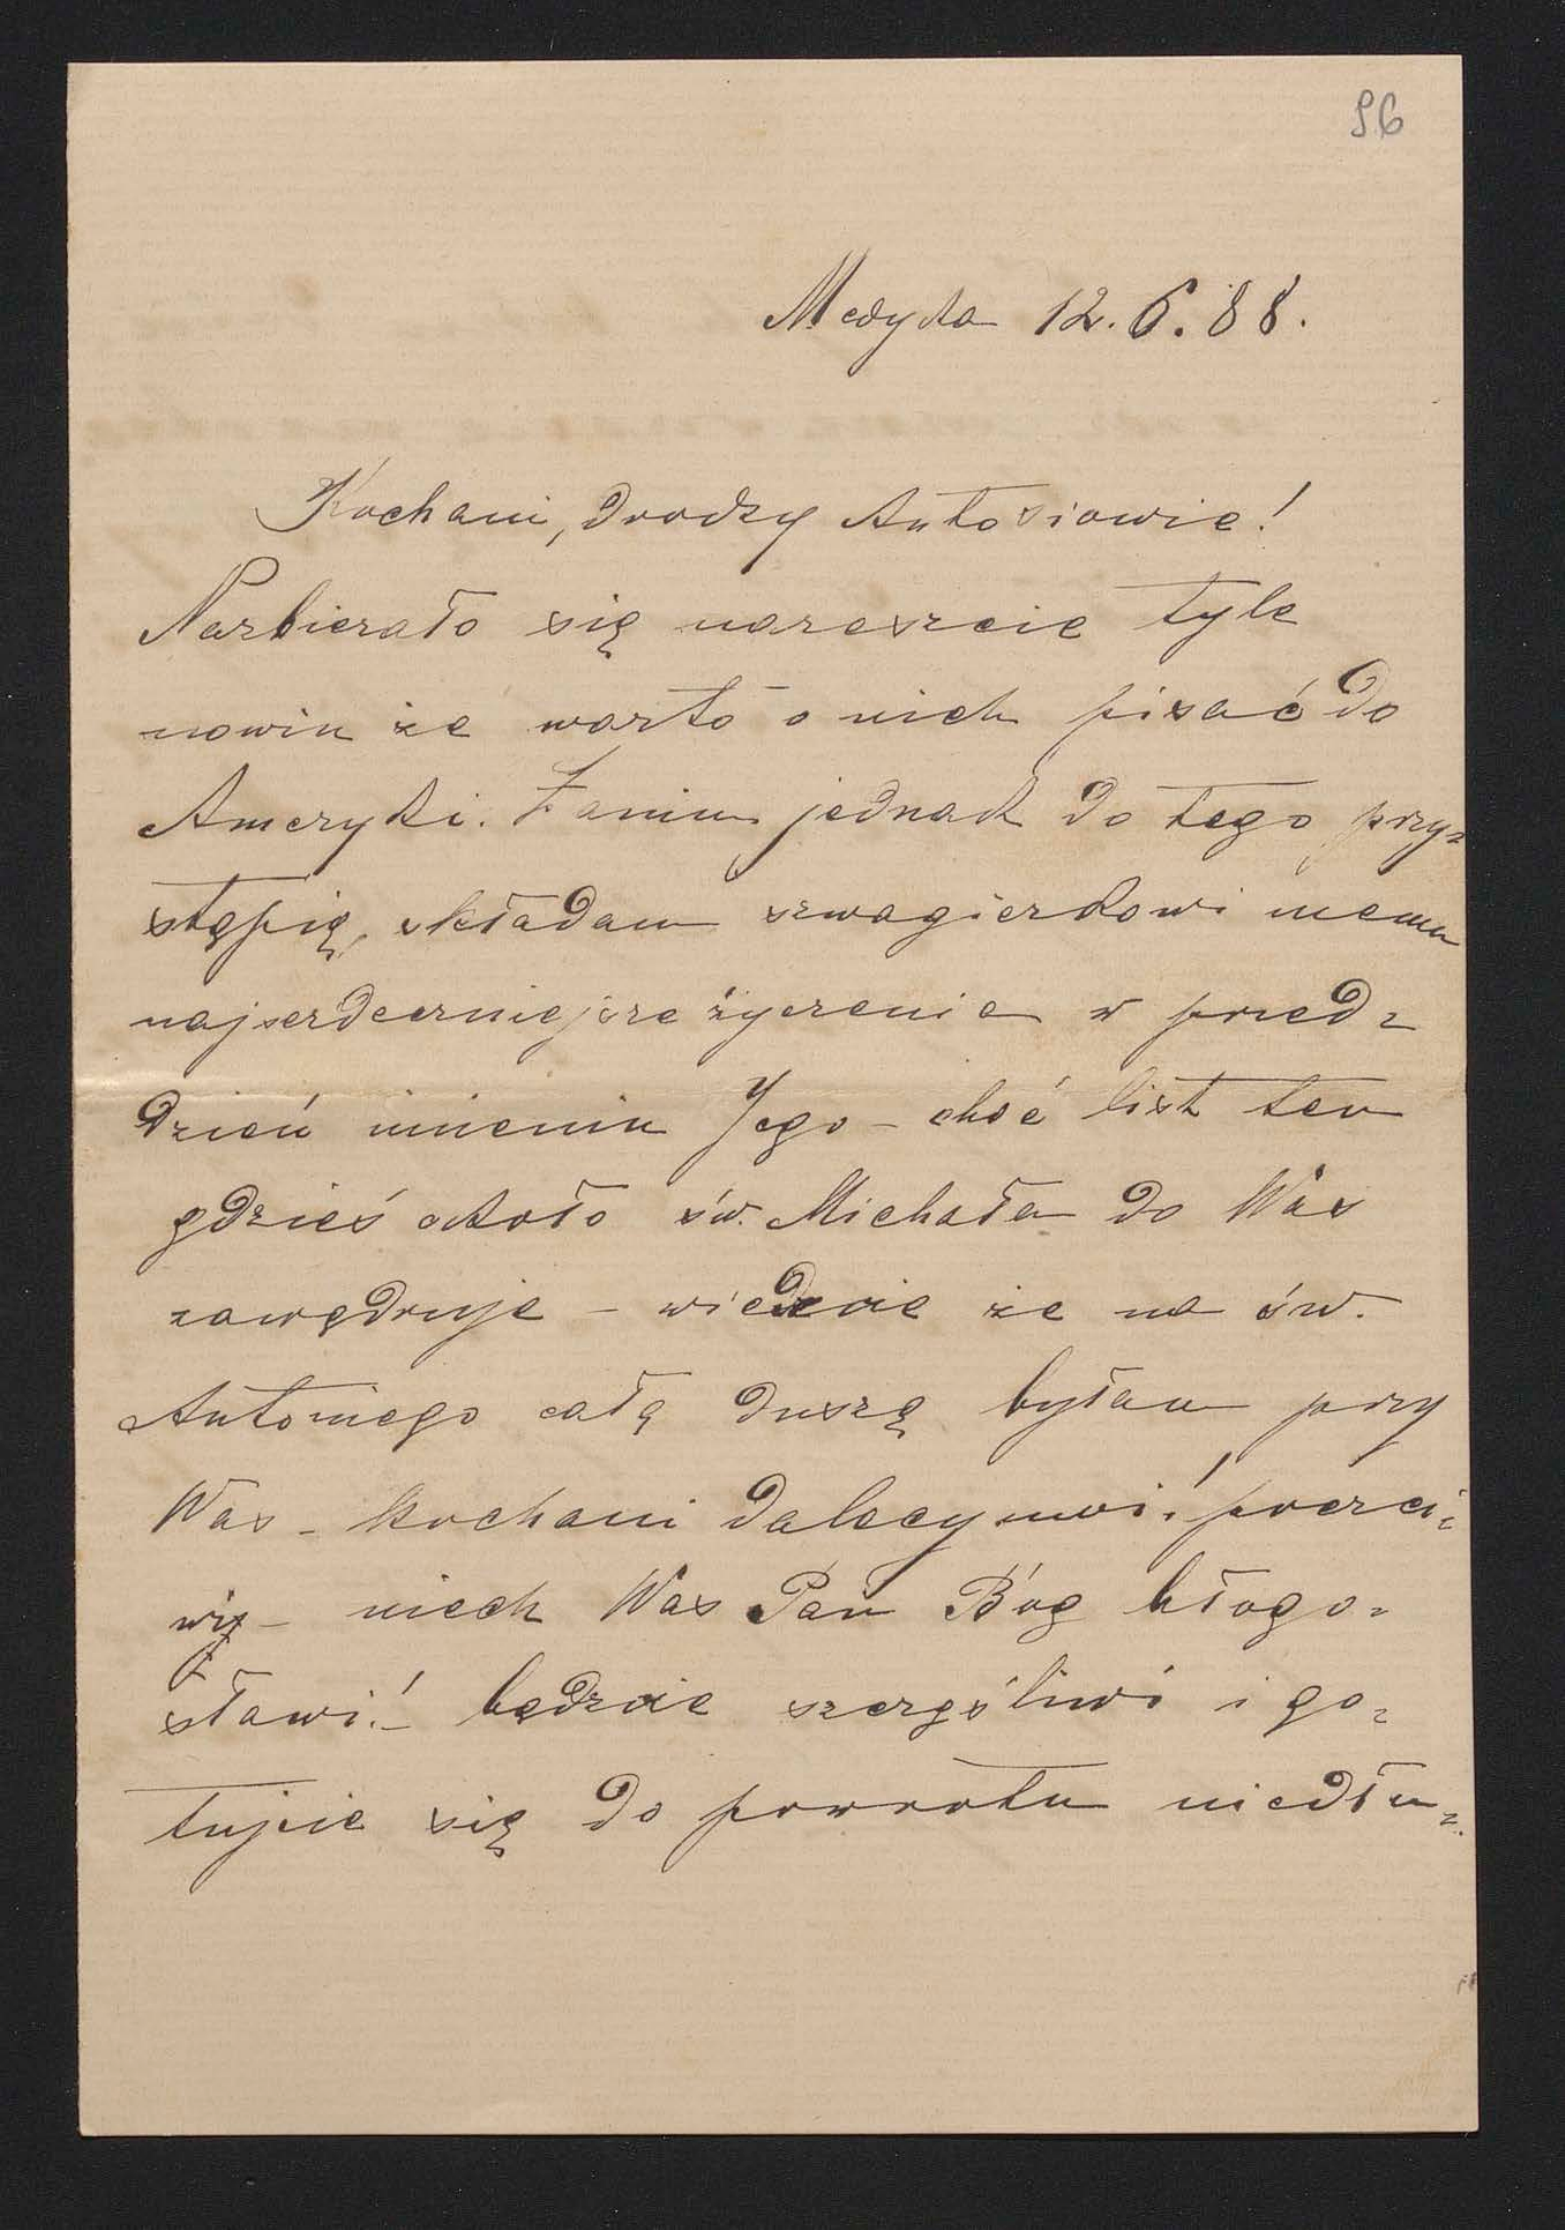 96
Medyka 12.6.88.
Kochani, drodzy Antosiowie!
Nazbierało się nareszcie tyle
nowin że warto o nich pisać do
Ameryki. Zanim jednak do tego przy=
stąpię, składam szwagierkowi memu
najserdeczniejsze życzenia w przed=
dzień imienin Jego – choć list ten
gdzieś około św. Michała do Was
zawędruje – wiedzcie że na św.
Antoniego całą duszą byłam przy
Was – kochani dalecy moi! poczci=
wi – niech Was Pan Bóg błogo=
sławi! – bądźcie szczęśliwi i go=
tujcie się do powrotu niedłu=